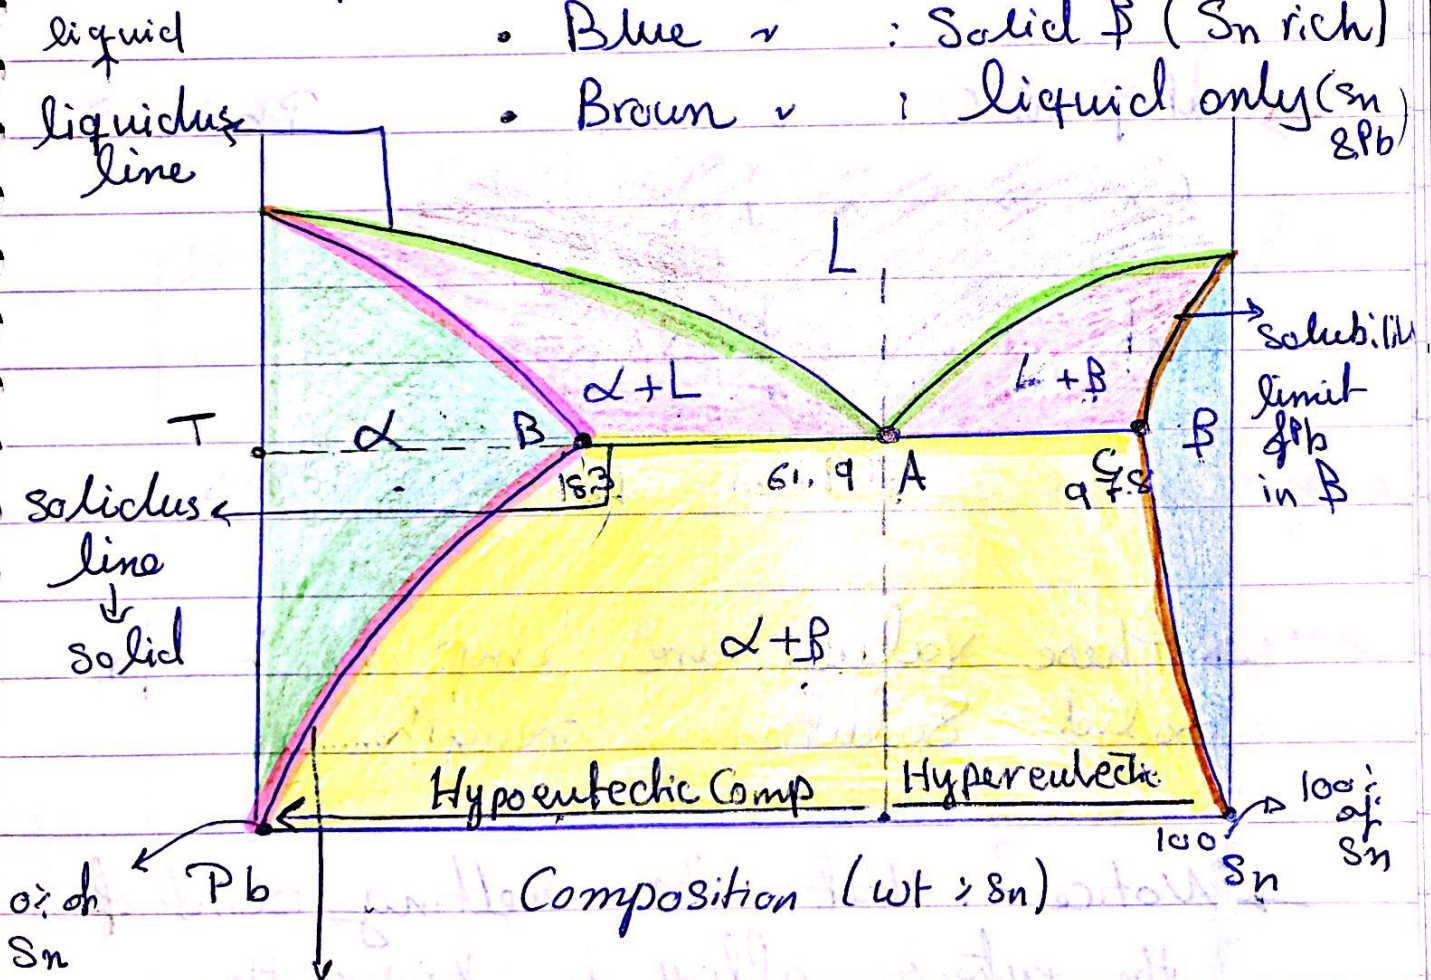 liquid
• Blue " : Solid β (Sn rich)
liquidus
line
• Brown " : liquid only (Sn
& Pb)
L
α+L
L+β
solubili
limit
of Pb
in β
T
α
B
β
18.3
61.9
A
C
97.8
solidus
line
solid
α+β
Hypoeutectic Comp
Hypereutectic
100
Sn
100%
of
Sn
0% of
Sn
Pb
Composition (wt % Sn)